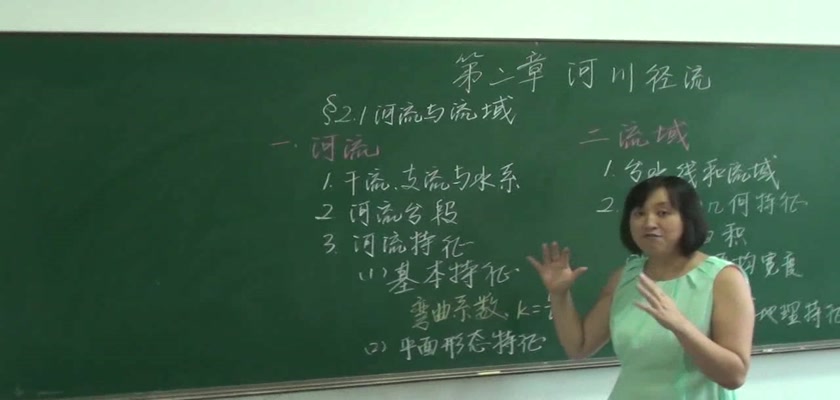 第二章 河川径流
§2.1 河流与流域
一. 河流
1. 干流、支流与水系
2 河流分段
3. 河流特征
(1) 基本特征
弯曲系数, K=
(2) 平面形态特征
二 流域
1. 分水线和流域
2. 几何特征
积
均宽度
地理特征